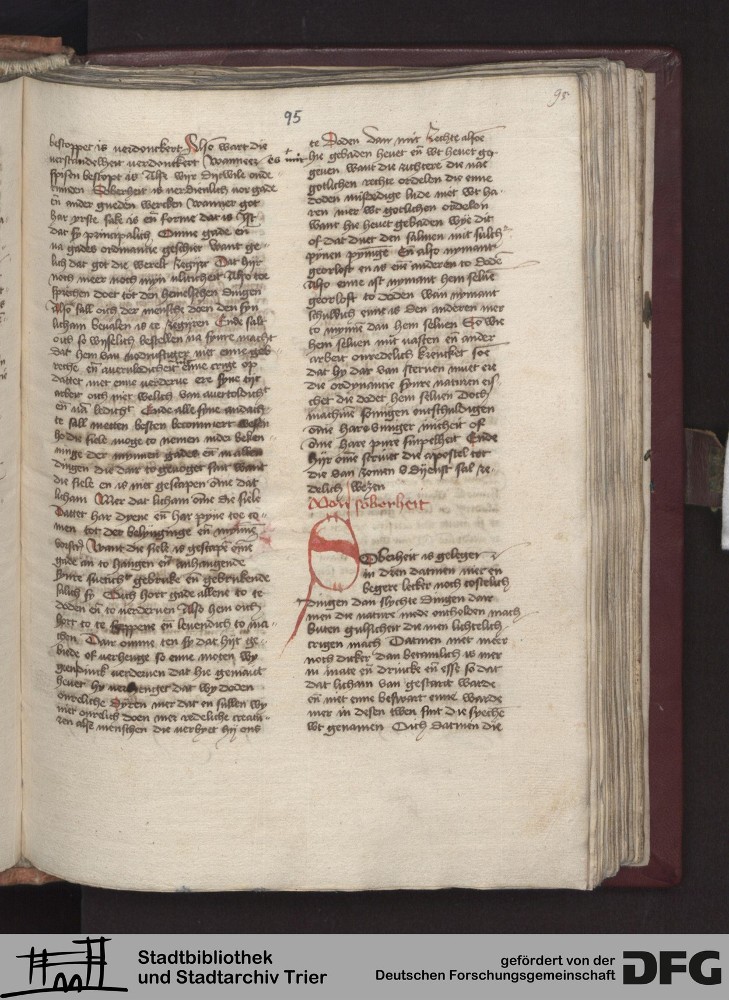 95
95
bestoppet is verdonckert Also wart die
verstandelheit verdonckert Wanneer
spisen bestopt is Alse wyr Dijewile onde
Soberheit is verdienlich vor gade
en ander gueden wercken Wanner got
har yrste sake is en forme dat is Ist
dat sy principalich Omme gade en
na gades ordinancie geschiet want ge
lich dat got die werelt regiret Dat hijr
noch meer noch myn Also toe
sprecken doer tot den hemelschen dingen
Also sall oich der mensche doen den syn
licham bevalen is te regiren Ende sall
oich so wyselich bestellen na synre macht
dat hem van
reche en enne crige op
dattet niet enne verderve ere syne tijt
arbeit oich niet welich van
en Ende alle syne andach
te sall meesten besten becommert wesen
ho die siele moge to nemen inder beken
ninge der mynnen gades en in allen
dingen die dair to gevoget sint want
die siele en is niet gescapen ome dat
licham Mer dat licham ome die siele
Dattet har dyene en har pyne toe co
men tot der en mynnen
Want die siele is gescapen ome
gade an to hangen en anhangende
synre gebruke en gebrukende
sallich sy Oich hort gade allene to te
doden en to verderven Also hem oich
hort to te en levendich to ma
chen Dair omme ten sy dat hijt ge
biede of verhenge so enne moten wy
verderven dat hie gemaict
hevet hy verhenget dat wy doden
onreliche dyren mer dat en sullen wy
niet onrelich doen mer redeliche creatu
ren alse menschen die verbyet hij ons
te Doden dan mit Rechte alsoe
es mit hie gebaden hevet en wt hevet ge
geven want die richtere die nae
gotlichen rechte ordelen die enne
doden misdedige lude niet wt ha
ren mer wt gotlichen ordelen
want hie hevet gebaden wye dit
of dat duet den salmen mit sulch
pynen pynige En also nymant
georloft en is em anderen to Dode
Also enne ist nymant hem selve
georloft to doden Wan nymant
schuldich enne is den anderen mer
to mynne dan hem selven So wie
hem selven mit vasten en ander
arbeit onredelich krencket soe
dat hy dar van sterven muet ere
die ordynancie synre naturen eis
chet die dodet hem selven Doch
machme sommigen ontschuldigen
ome hare vuriger
ome hare pure simpelheit Ende
hijr ome scrivet die apostel tot
die van Romen v Dijenst sal re
delich wezen
Von soberheit
Soberheit is gelegen
in dren datmen niet en
begere lecker noch costelich
dingen dan slychte dingen dar
men die nature mede ontholden mach
buten gulsicheit die men lichtelich
crigen mach Datmen niet meer
noch dicker dan betamlich is mer
in mate en drincke en esse so dat
dat licham van gestarct warde
en niet enne beswart enne warde
mer in desen twen sint die spreche
wt genamen Oich datmen die
Stadtbibliothek
und Stadtarchiv Trier
gefördert von der
Deutschen Forschungsgemeinschaft
DFG